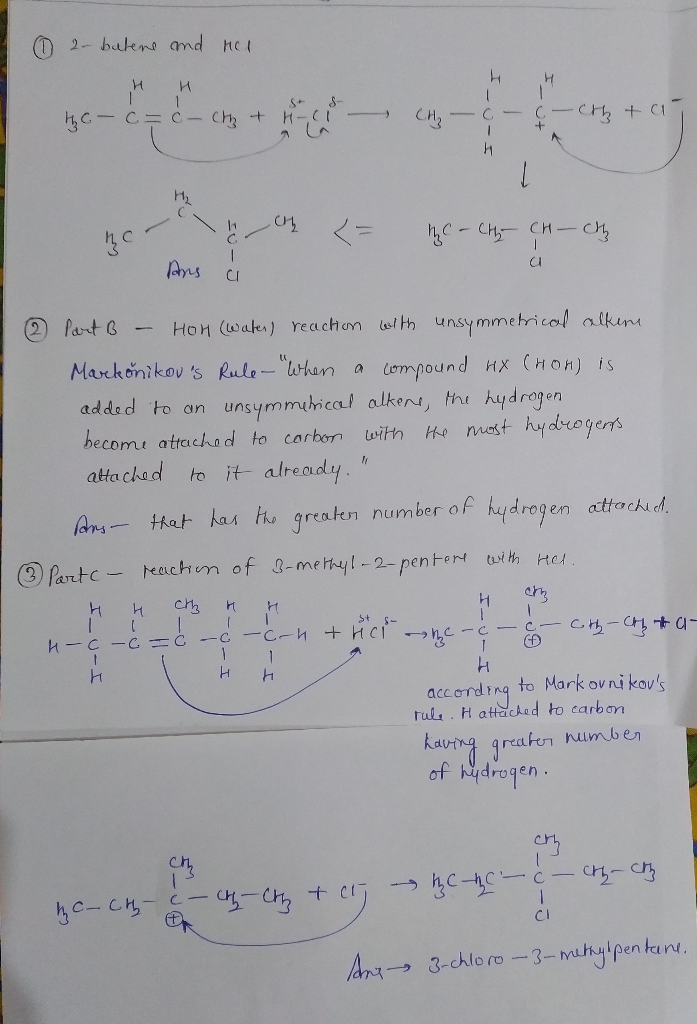 ① 2-butene and HCl
H H
H₃C — C = C — CH₃ + H—Cl → CH₃ — C — C — CH₃ + Cl⁻
δ+ δ-
H H
+
H
↓
H₂
H₃C C H C CH₃ <= H₃C — CH₂ — CH — CH₃
Ans Cl Cl
② Part B — HOH (water) reaction with unsymmetrical alkene
Markőnikov's Rule — "When a compound HX (HOH) is
added to an unsymmetrical alkene, the hydrogen
become attached to carbon with the most hydrogens
attached to it already."
Ans — that has the greater number of hydrogen attached.
③ Part C — reaction of 3-methyl-2-pentene with HCl.
H H CH₃ H H H CH₃
H — C — C = C — C — C — H + HCl → H₃C — C — C — CH₂ — CH₃ + Cl⁻
δ+ δ-
H H H H ⊕
according to Markovnikov's
rule. H attached to carbon
having greater number
of hydrogen.
CH₃ CH₃
H₃C — CH₂ — C — CH₂ — CH₃ + Cl⁻ → H₃C — H₂C — C — CH₂ — CH₃
⊕ Cl
Ans → 3-chloro-3-methylpentane.